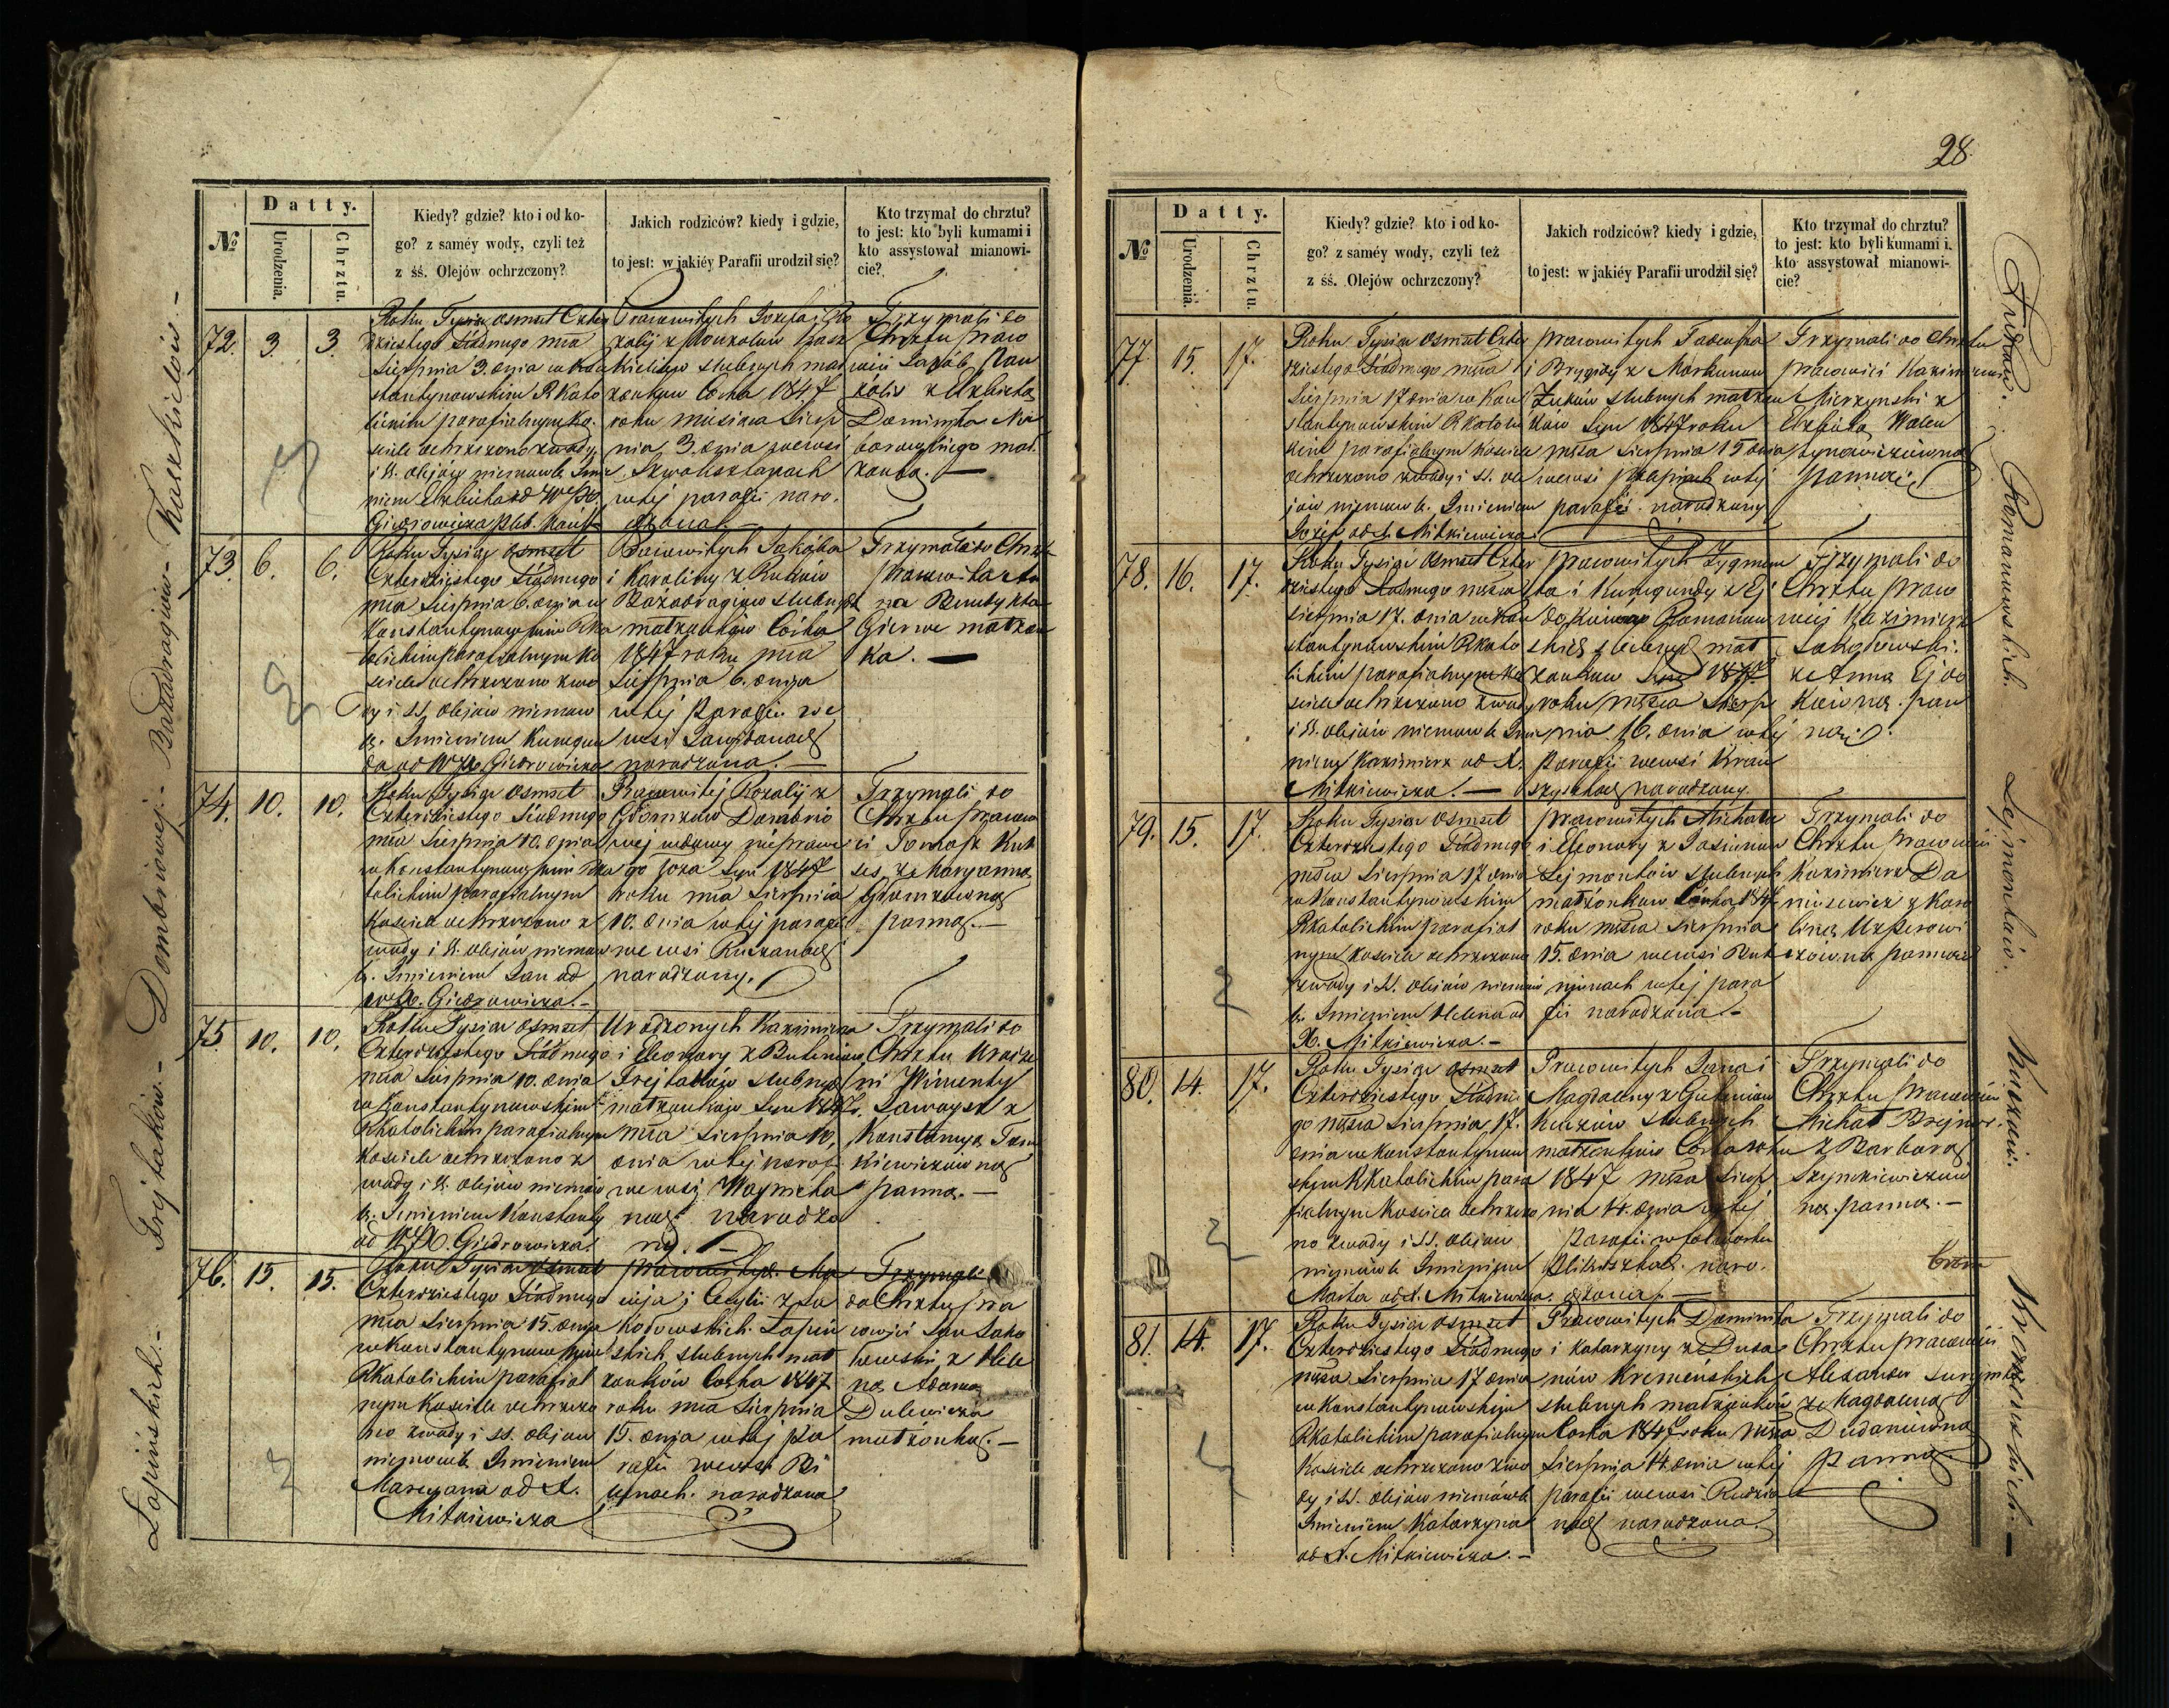 28
Datty.
№
Urodzenia.
Chrztu.
Kiedy? gdzie? kto i od ko-
go? z saméy wody, czyli też
z śś. Olejów ochrzczony?
Jakich rodziców? kiedy i gdzie,
to jest: w jakiéy Parafii urodził się?
Kto trzymał do chrztu?
to jest: kto byli kumami i
kto assystował mianowi-
cie?
72. 3. 3.
Roku Tysiąc osmset Czter
dziestego Siódmego mca
Sierpnia 3. dnia w Kon
stantynowskim RKato
lickim parafialnym Ko-
ściele ochrzczono zwody
i SS. olejów niemowle Imie
niem Elżbieta od WJX
Giedrowicza Pleb. Konst.
Pracowitych Jozefa i Ro
zalij z
Kielisow slubnych mał
żonkow Corka 1847
roku miesiąca Sierp
nia 3. dnia wewsi
Szwaksztanach
wtej parafii naro-
dzona.
Trzymali do
Chrztu Praco
wici Jakób Ran
kolis z Elżbietą
Dominika No
małżonką. —
73. 6. 6.
Roku Tysiąc osmset
Czterdziestego Siódmego
mca Sierpnia 6. dnia w
Konstantynowskim RKa
tolickim parafialnym Ko
sciele ochrzczono zwo
dy i SS. olejow niemow
le. Imieniem Kunegun
da od WJX. Giedrowicza
Pracowitych Jakóba
i Karoliny z Rukszów
Bażadragisow slubnych
małżonków Córka
1847 roku mca
Sierpnia 6. dnia
wtej Parafii we
wsi Zawidanach
narodzona. —
Trzymała do Chrztu
Pracowita An
na Benedykta
Gierwe małżon
ka. —
74. 10. 10.
Roku Tysiąc osmset
Czterdziestego Siódmego
mca Sierpnia 10. dnia
w Konstantynowskim RKa
tolickim parafialnym
Kosciele ochrzczono z
wody i SS. olejów niemow
le. Imieniem Jan od
WJX. Giedrowicza. —
Pracowitej Rozalij z
Dombrio
wej wdowy niepraw
go łoża Syn 1847
roku mca Sierpnia
10. dnia wtej parafii
we wsi Ruczanach
narodzony.
Trzymali do
Chrztu Pracow
ci Tomasz Kuk
sis, ze Maryanną
panną. —
75. 10. 10.
Roku Tysiąc osmset
Czterdziestego Siódmego
mca Sierpnia 10. dnia
w Konstantynowskim
RKatolickim parafialnym
Kosciele ochrzczono z
wody i SS. olejów niemów
le. Imieniem Konstanty
od WJX. Giedrowicza.
Urodzonych Kazimierza
i Eleonory z Butenisow
Frejtaków slubnych
małżonków Syn 1847 r.
mca Sierpnia 10.
dnia wtej parafi
we wsi Woynieka
nach narodzo
ny. —
Trzymali do
Chrztu Urodze
ni Wincenty
Zawoysk z
Konstancyą Tom
kiewiczówną
panną. —
76. 15. 15.
Roku Tysiąc osmset
Czterdziestego Siódmego
mca Sierpnia 15. dnia
w Konstantynowskim
RKatolickim parafial
nym Kosciele ochrzczo
no zwody i SS. olejow
niemowle Imieniem
Maryana od X.
Mitkiewicza
Pracowitych Ma
cieja i Cecylii z Sa
kosowskich Łapiń
skich slubnych mał
żonków Corka 1847
roku mca Sierpnia
15. dnia wtej pa
rafii we wsi Ri
narodzona
Trzymali
do Chrztu Pra
cowici Jan Sako
lewski, z Hele
ną Adama
Dulewicza
małżonką. —
Łapińskich. — Frejtaków. — Dombriowej. — Bażadragisow — Kaszkielow. —
Datty.
№
Urodzenia.
Chrztu.
Kiedy? gdzie? kto i od ko-
go? z saméy wody, czyli też
z śś. Olejów ochrzczony?
Jakich rodziców? kiedy i gdzie,
to jest: w jakiéy Parafii urodził się?
Kto trzymał do chrztu?
to jest: kto byli kumami i
kto assystował mianowi-
cie?
77. 15. 17.
Roku Tysiąc Osmset Czter
dziestego Siodmego msca
Sierpnia 17 dnia w Kon
stantynowskim RKatolic
kim parafialnym Kosciele
ochrzczono zwody i SS. ole
jów niemowle. Imieniem
Jozef od X. Mitkiewicza
Pracowitych Tadeusza
i Brygidy z Markunow
Żuków slubnych małżon
ków Syn 1847 roku
msca Sierpnia 15 dnia
wewsi wtej
parafii narodzony
Trzymali do Chrztu
Pracowici Kazimierz
Mierzynski z
Elżbietą Walen
tynowiczówną
panną.
78. 16. 17.
Roku Tysiąc Osmset Czter
dziestego Siodmego msca
Sierpnia 17. dnia w Kon
stantynowskim RKato
lickim parafialnym Ko
sciele ochrzczono zwody
i SS. olejów niemowle Imie
niem Kazimierz od X.
Mitkiewicza. —
Pracowitych Zygmun
ta i Kunegundy z Ej
dokiów Romanow
skich slubnych mał
żonkow Syn 1847
roku msca Sierp
nia 16. dnia wtej
Parafii wewsi Kraw
narodzony.
Trzymali do
Chrztu Praco
wici Kazimierz
Sakołowski.
ze Anną Ejdo
kiówną. pan
ną.
79. 15. 17.
Roku Tysiąc Osmset
Czterdziestego Siódmego
msca Sierpnia 17 dnia
w Konstantynowskim
RKatolickim parafial
nym Kosciele ochrzczono
zwody i SS. olejów niemów
le. Imieniem Helena od
X. Mitkiewicza. —
Pracowitych Michała
i Eleonory z Jasiunow
Lejmontów slubnych
małżonkow Córka 1847
roku msca Sierpnia
15. dnia wewsi Ruk
sztej para
fii narodzona. —
Trzymali do
Chrztu Pracowici
Kazimierz Da
niusewicz z Karo
liną
panną
80. 14. 17.
Roku Tysiąc Osmset
Czterdziestego Siódme
go msca Sierpnia 17.
dnia w Konstantynow
skim RKatolickim para
fialnym Kosciele ochrzczo
no zwody i SS. olejow
niemowle Imieniem
Marta od X. Mitkiewicza.
Pracowitych Jana i
Magdaleny z Gutenisow
Kuczisów slubnych
małżonków Corka roku
1847 msca Sierp
nia 14. dnia wtej
Parafii w folwarku
naro-
dzona. —
Trzymali do
Chrztu Pracowici
Michał Brejmer
z Barbarą
Szymkiewiczow
ną. panną. —
81. 14. 17.
Roku Tysiąc Osmset
Czterdziestego Siódmego
msca Sierpnia 17 dnia
w Konstantynowskim
RKatolickim parafialnym
Kosciele ochrzczono zwo
dy i SS. olejów niemówle
Imieniem Katarzyna
od X. Mitkiewicza. —
Pracowitych Dominika
i Katarzyny z Dusa
nów Kremeńskich
slubnych małżonków
Corka 1847 roku msca
Sierpnia 14 dnia wtej
parafii wewsi Rudzia
nach narodzona.
Trzymali do
Chrztu Pracowici
Alexander
ze Magdaleną
Dudanówną
Panną
Żuków. Romanowskich. Lejmontów. Kuczisów. Kremeńskich. —